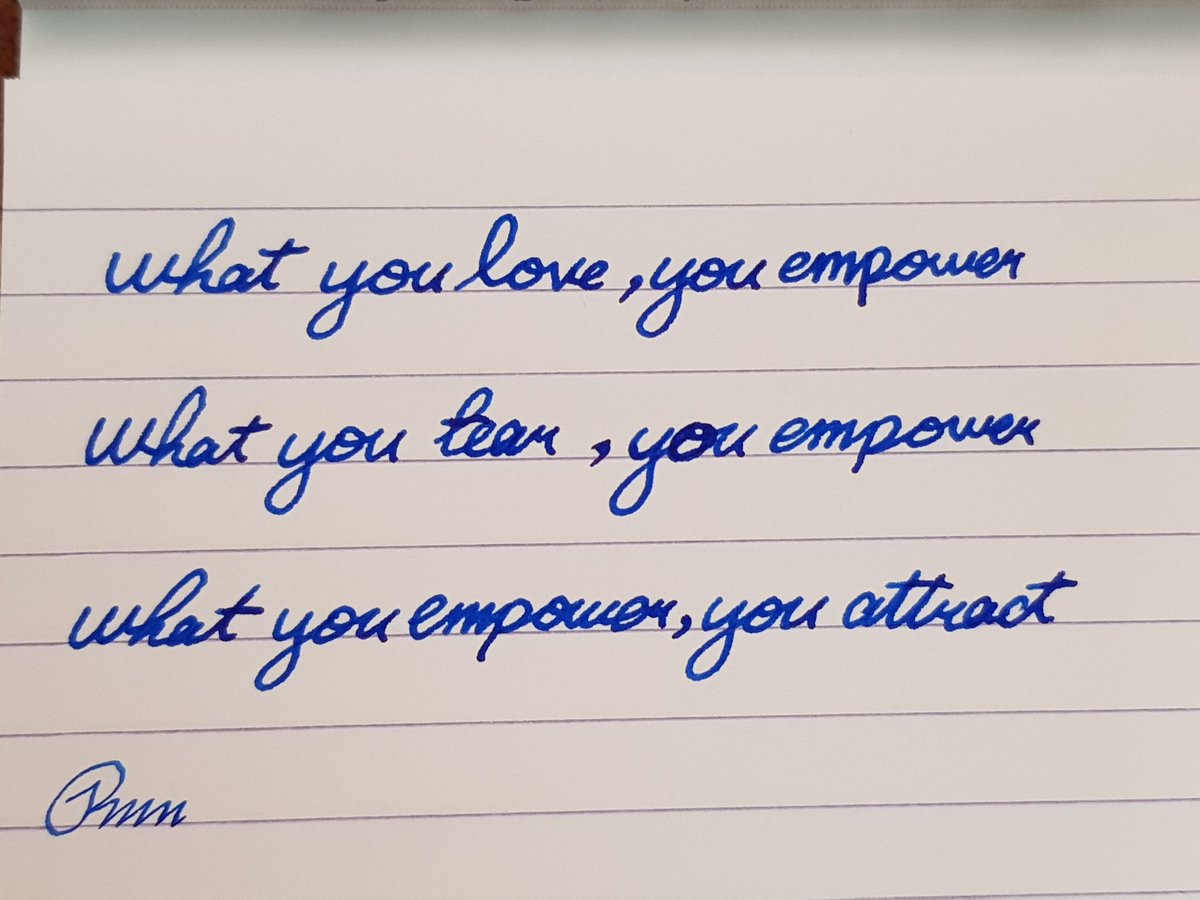 what you love, you empower
what you fear, you empower
what you empower, you attract